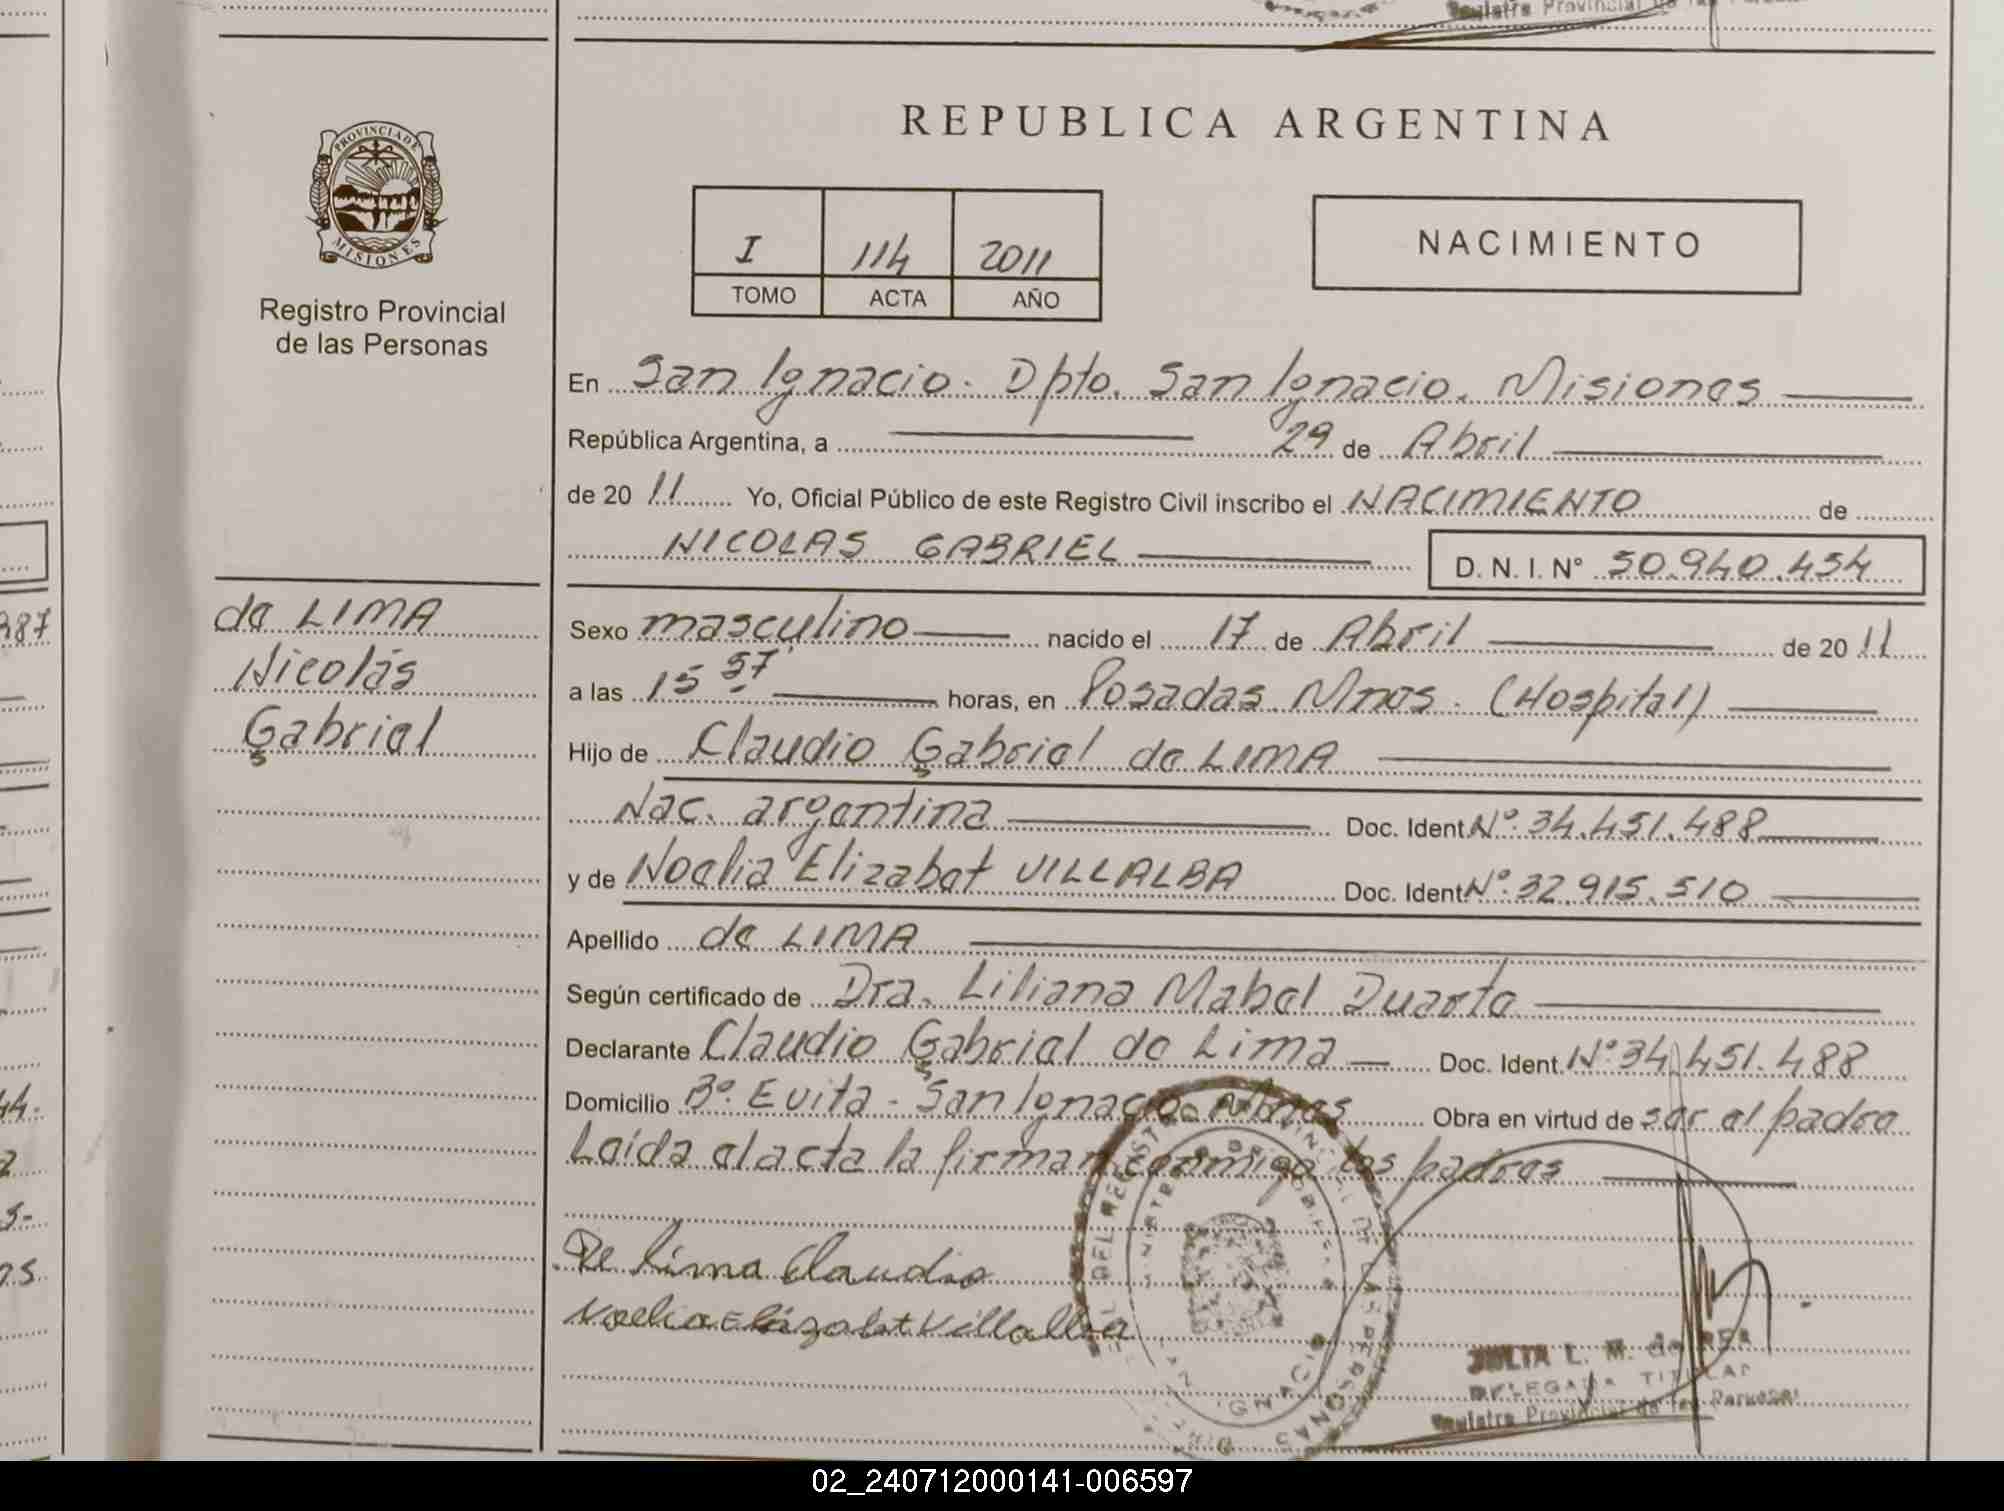 PROVINCIA DE
MISIONES
Registro Provincial
de las Personas
de LIMA
Nicolás
Gabriel
REPUBLICA ARGENTINA
I 114 2011
TOMO ACTA AÑO
NACIMIENTO
En San Ignacio. Dpto. San Ignacio. Misiones
República Argentina, a 29 de Abril
de 2011 Yo, Oficial Público de este Registro Civil inscribo el NACIMIENTO de
NICOLAS GABRIEL D. N. I. N° 50.940.454
Sexo masculino nacido el 17 de Abril de 2011
a las 15 57' horas, en Posadas Mnes. (Hospital)
Hijo de Claudio Gabriel de LIMA
Nac. argentina Doc. Ident N°. 34.451.488
y de Noelia Elizabet VILLALBA Doc. Ident N°. 32.915.510
Apellido de LIMA
Según certificado de Dra. Liliana Mabel Duarte
Declarante Claudio Gabriel de Lima Doc. Ident. N°. 34.451.488
Domicilio B°. Evita - San Ignacio Mnes Obra en virtud de ser el padre
Leída el acta la firman conmigo los padres
De Lima Claudio
Noelia Elizabet Villalba
JULIA L. M. de
DELEGADA TITULAR
Registro Provincial de las Personas
02_240712000141-006597